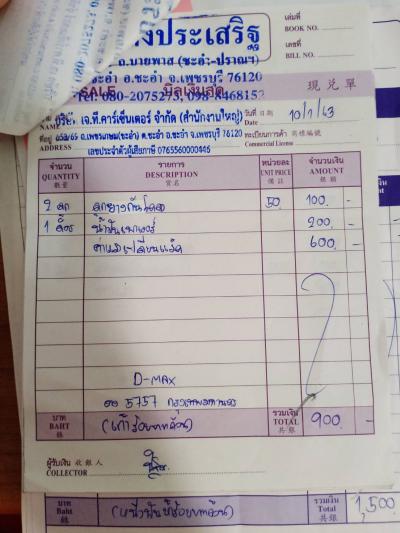 งประเสริฐ
เล่มที่
BOOK NO.
ถ.บายพาส (ชะอำ-ปราณฯ)
เลขที่
BILL NO.
ชะอำ อ.ชะอำ จ.เพชรบุรี 76120
SALE บิลเงินสด 現兌單
Tel: 080-2075273, 098-4468152
NAME บริษัท เจ.ที.คาร์เซ็นเตอร์ จำกัด (สำนักงานใหญ่) วันที่ 日期
Date 10/1/63
ที่อยู่ 658/65 ถ.เพชรเกษม(ชะอำ) ต.ชะอำ อ.ชะอำ จ.เพชรบุรี 76120 ทะเบียนการค้า 商標編號
ADDRESS เลขประจำตัวผู้เสียภาษี 0765560000446 Commercial License
จำนวน รายการ หน่วยละ จำนวนเงิน
QUANTITY DESCRIPTION UNIT PRICE AMOUNT
數量 貨名 備註 銀
2 ลูก ลูกยางกันโคลง 50 100 -
1 ลิตร น้ำมันเพาเวอร์ 200 -
ค่าแรงเปลี่ยนแร็ค 600 -
D-MAX
5757 กรุงเทพมหานคร
บาท รวมเงิน
BAHT (เก้าร้อยบาทถ้วน) TOTAL 900 -
銖 共銀
ผู้รับเงิน 收銀人
COLLECTOR
บาท รวมเงิน
Baht (หนึ่งพันห้าร้อยบาทถ้วน) Total 1,500
銖 共銀